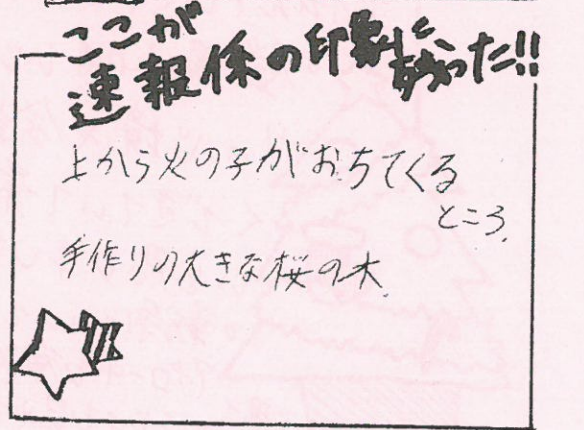 ここが
速報係の印象に残った!!
上から火の子がおちてくる
ところ.
手作りの大きな桜の木.